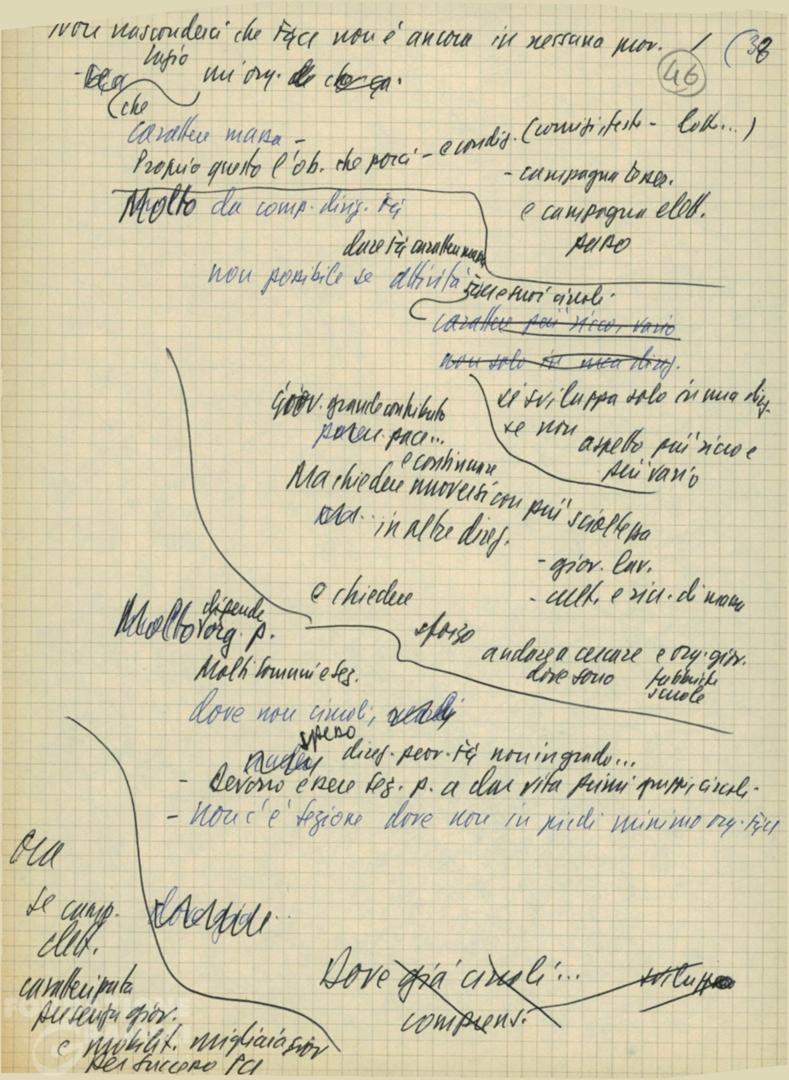 Non nascondersi che Fgci non è ancora in nessuna prov. / (38
46
un'org. di
che
carattere massa -
Proprio questo l'ob. che porci - e condiz. (comizi, feste - lott...)
- campagna tess.
e campagna elett.
Molto da comp. dirig. Fg
dare Fg carattere massa
non possibile se attività
Fgci e suoi circoli -
carattere più ricco, vario
non solo in una direz.
si sviluppa solo in una dir.
se non
aspetto più ricco e
più vario
giov. grande contributo
pace...
e continuare
Ma chiedere muoversi con più scioltezza
in altre direz.
- giov. lav.
- cult. e ricr. di massa
e chiedere
sforzo
andare a cercare e org. giov.
dove sono fabbriche
scuole
Molto dipende
org. p.
Molti comuni e sez.
dove non circoli,
spesso
direz. prov. Fg non in grado...
- Devono essere sez. p. a dar vita primi gruppi, circoli -
- Non c'è sezione dove non in piedi minimo org. Fgci
Ora
se camp.
elett.
caratterizzata
presenza giov.
e mobilit. migliaia giov
per successo PCI
Dove già circoli...
sviluppo
comprens.